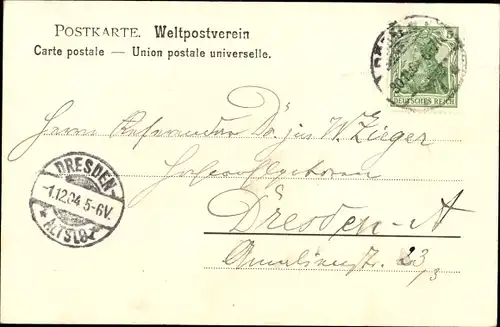 POSTKARTE. Weltpostverein
Carte postale — Union postale universelle.
5
DEUTSCHES REICH
Herrn Referendar Dr. jur. W. Zieger
Hochwohlgeboren
DRESDEN-
-1.12.04 5-6V.
* ALTST. *
Dresden-A
23